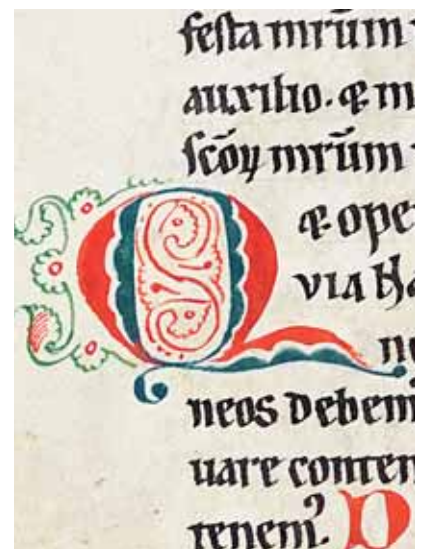 festa mrūm
auxilio. & m
scōꝝ mrūm
Q & ope
VIA ha
ne
neos debem
uare conten
tenem᷒. P